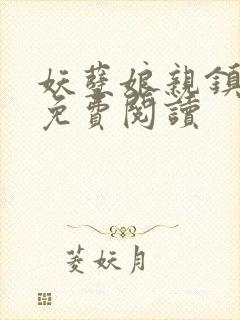 妖孽娘親鎮
免費閱讀
菱妖月